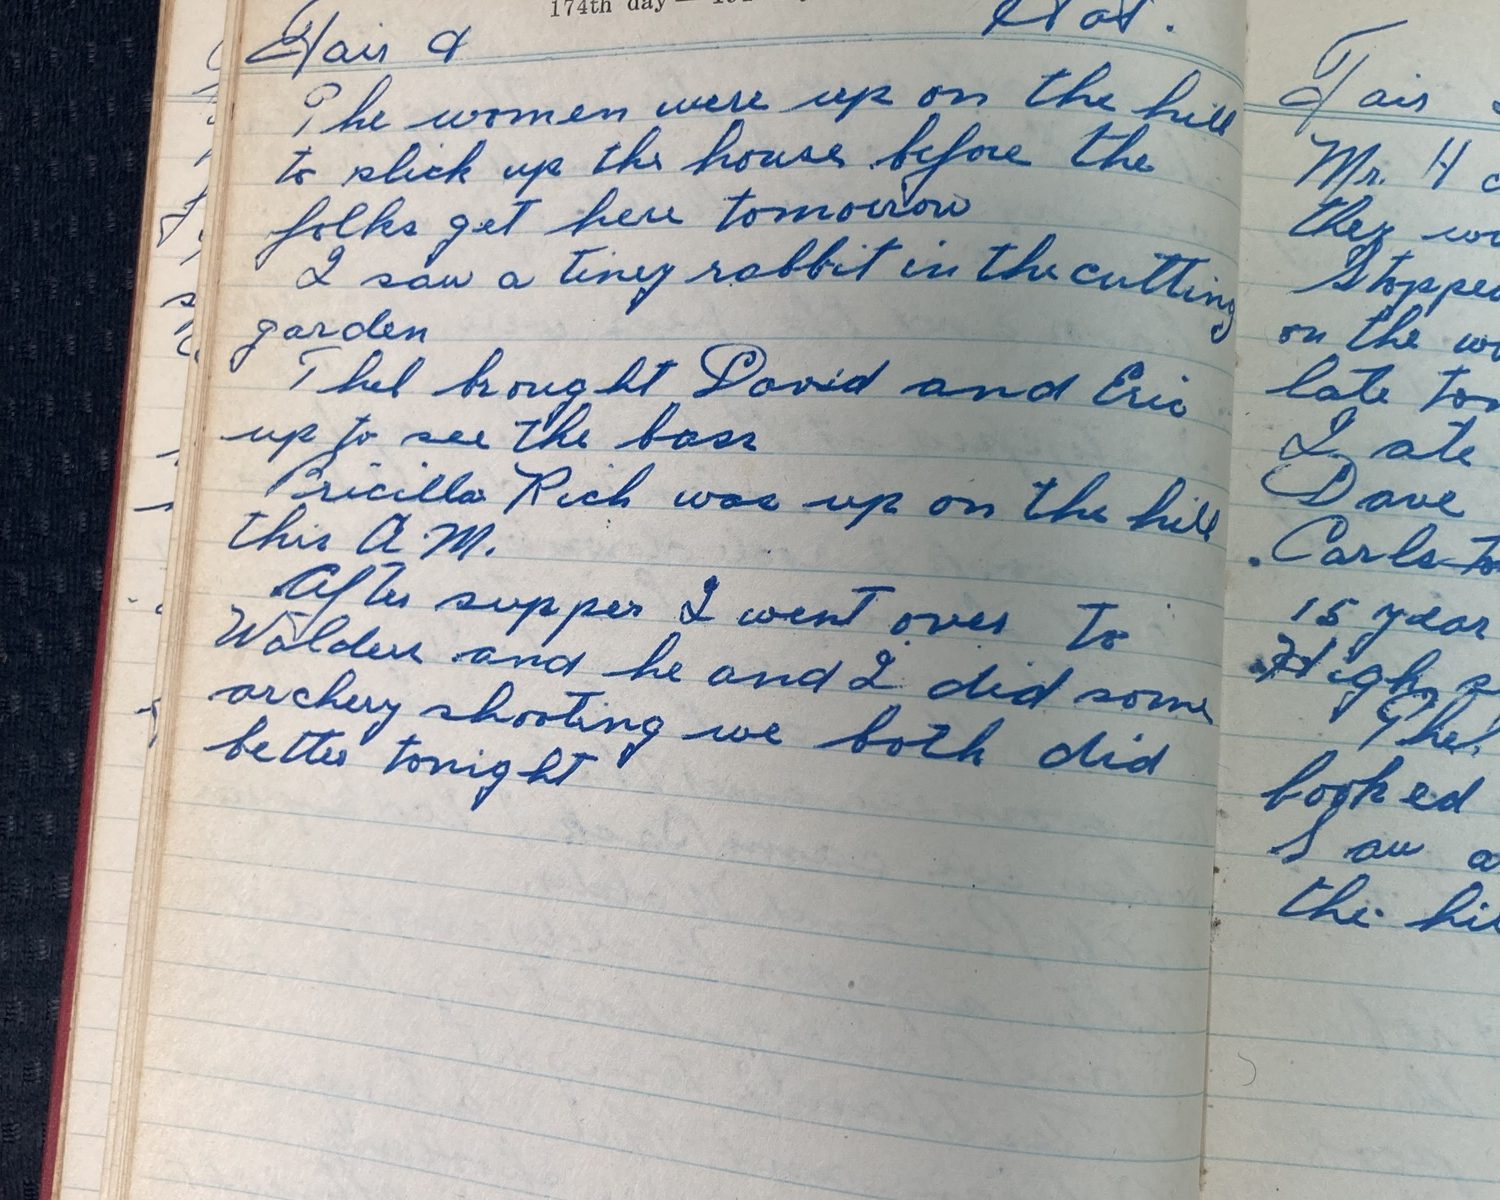 174th day
Fair & Hot.
The women were up on the hill
to slick up the house before the
folks get here tomorrow
I saw a tiney rabbit in the cutting
garden
Thel brought David and Eric
up to see the bass
Pricilla Rich was up on the hill
this A M.
After supper I went over to
Walden and he and I did some
archery shooting we both did
better tonight
Fair
Mr. H
they
Stopped
on the
late
I ate
Dave
Carls
15 year
High
Thel
booked
Saw
the